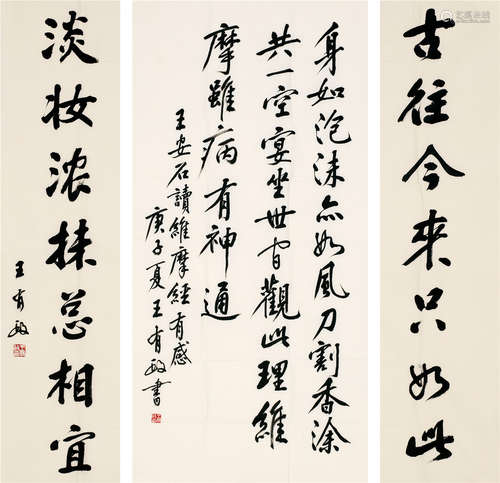 古往今來只如此
身如泡沫亦如風刀割香涂
共一空宴坐世間觀此理維
摩雖病有神通
王安石讀維摩經有感
庚子夏王有政書
淡妝浓抹总相宜
王有政